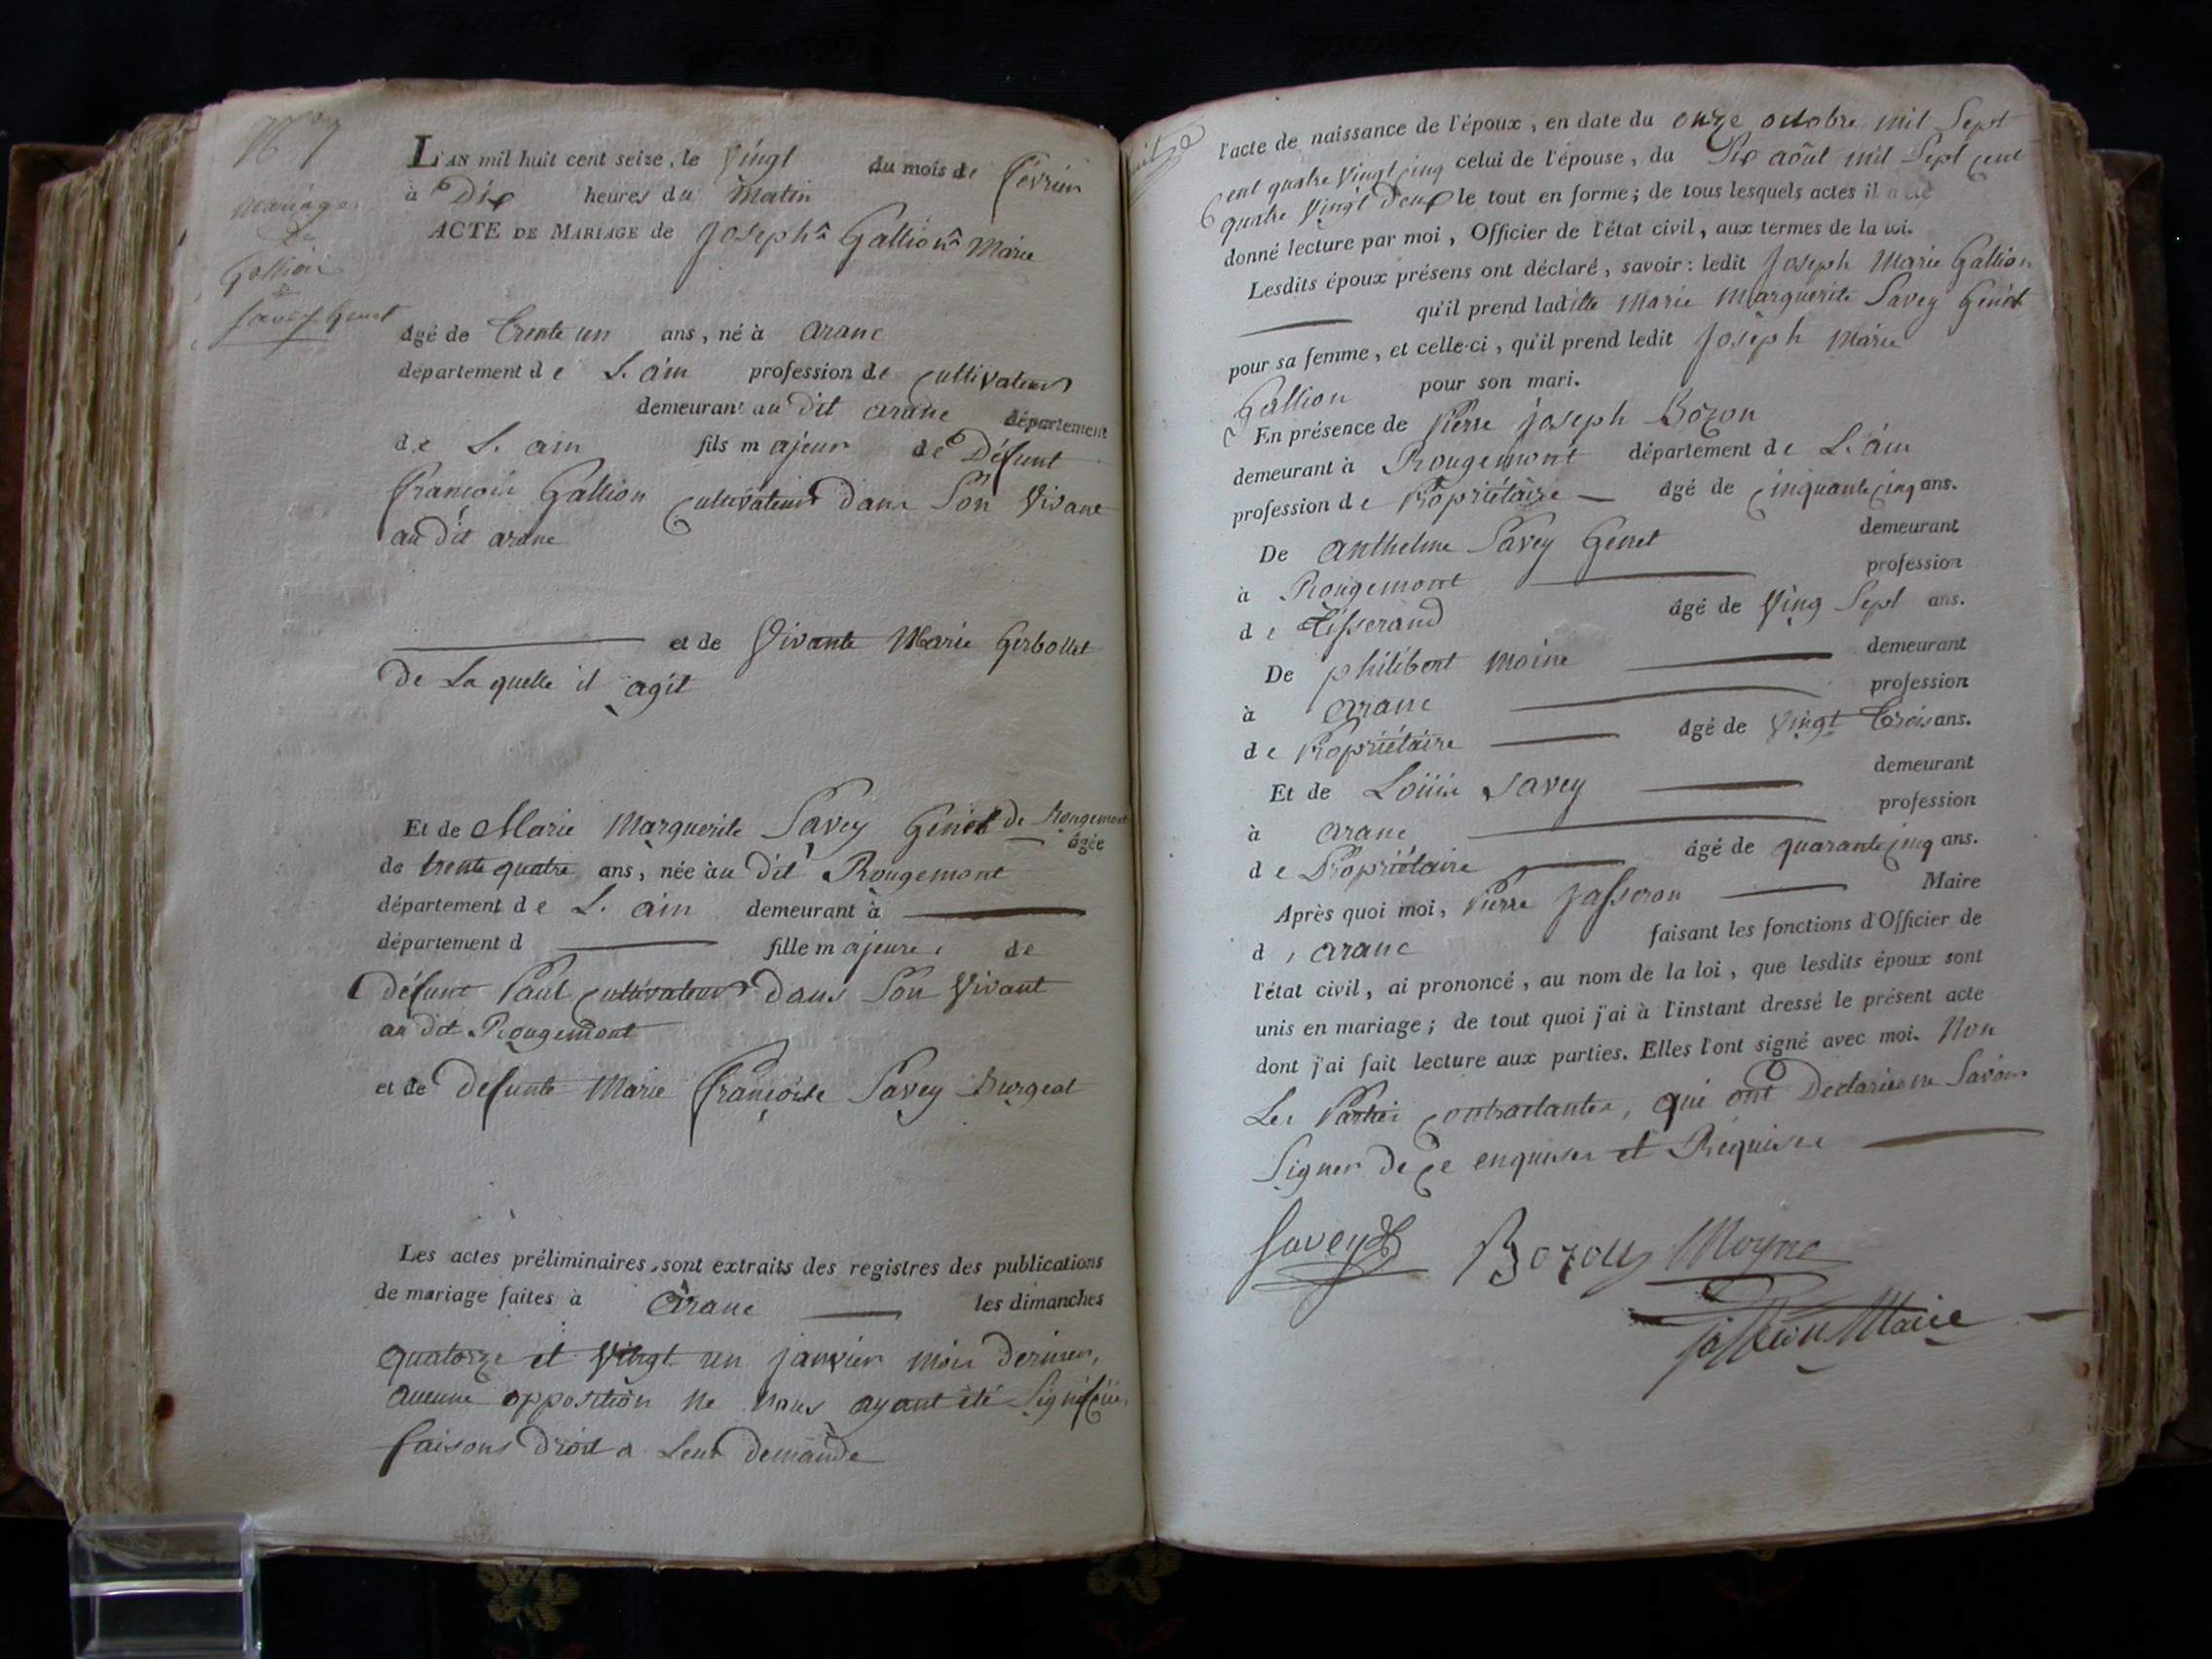 Nº 7
mariage
de
Gallion
et
Savey Genet
L'AN mil huit cent seize, le Vingt du mois de février
à Dix heures du Matin
ACTE DE MARIAGE de Joseph Gallion Marie
âgé de trente un ans, né à aranc
département de L. ain profession de cultivateur
demeurant au dit aranc département
de L. ain fils majeur de Défunt
françois Gallion cultivateur dans Son Vivant
au dit aranc
et de Vivante Marie Gerbollet
de La quelle il agit
Et de Marie Marguerite Savey Genet de Rougemont
âgée
de trente quatre ans, née au dit Rougemont
département de L. ain demeurant à
département d fille majeure de
défunt Paul cultivateur dans Son Vivant
au dit Rougemont
et de defunte Marie françoise Savey Burgeat
Les actes préliminaires sont extraits des registres des publications
de mariage faites à Aranc les dimanches
quatorze et Vingt un janvier mois dernier,
aucune opposition ne nous ayant été Signifiée,
faisons droit a Leur demande
l'acte de naissance de l'époux, en date du onze octobre mil Sept
Cent quatre Vingt cinq celui de l'épouse, du Six août mil Sept cent
quatre Vingt Deux le tout en forme; de tous lesquels actes il a été
donné lecture par moi, Officier de l'état civil, aux termes de la loi.
Lesdits époux présens ont déclaré, savoir: ledit Joseph Marie Gallion
qu'il prend ladite Marie Marguerite Savey Genet
pour sa femme, et celle-ci, qu'il prend ledit Joseph Marie
Gallion pour son mari.
En présence de Pierre joseph Bozon
demeurant à Rougemont département de L. ain
profession de Propriétaire âgé de cinquante cinq ans.
De Anthelme Savey Genet demeurant
à Rougemont profession
de Tisserand âgé de Ving Sept ans.
De philibert Moine demeurant
à Aranc profession
de Propriétaire âgé de Vingt trois ans.
Et de Louis Savey demeurant
à Aranc profession
de Propriétaire âgé de quarante cinq ans.
Après quoi moi, Pierre Jasseron Maire
d, aranc faisant les fonctions d'Officier de
l'état civil, ai prononcé, au nom de la loi, que lesdits époux sont
unis en mariage; de tout quoi j'ai à l'instant dressé le présent acte
dont j'ai fait lecture aux parties. Elles l'ont signé avec moi. Non
Les Parties contractantes, qui ont Declarées ne Savoir
Signer de ce enquises et Requises
Savey Bozon Moyne
jasseron Maire